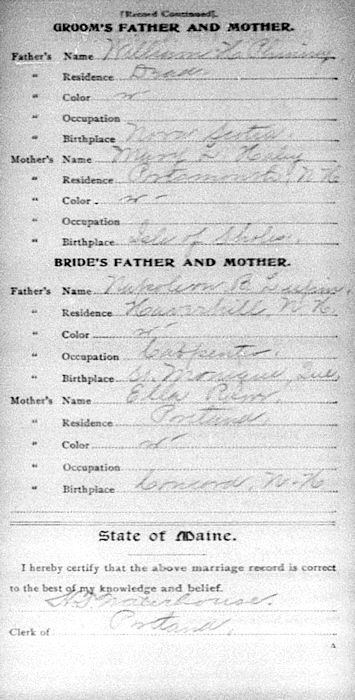 [Record Continued].
GROOM'S FATHER AND MOTHER.
Father's Name William H.
" Residence Dead
" Color W
" Occupation
" Birthplace Nova Scotia.
Mother's Name Mary L. Haley
" Residence Portsmouth, N.H.
" Color W
" Occupation
" Birthplace Isle of Sholes.
BRIDE'S FATHER AND MOTHER.
Father's Name B.
" Residence Haverhill, N.H.
" Color W
" Occupation Carpenter.
" Birthplace St. Monique, Que.
Mother's Name Ella
" Residence Portland,
" Color W
" Occupation
" Birthplace Concord, N.H.
State of Maine.
I hereby certify that the above marriage record is correct
to the best of my knowledge and belief.
Waterhouse.
Clerk of Portland,